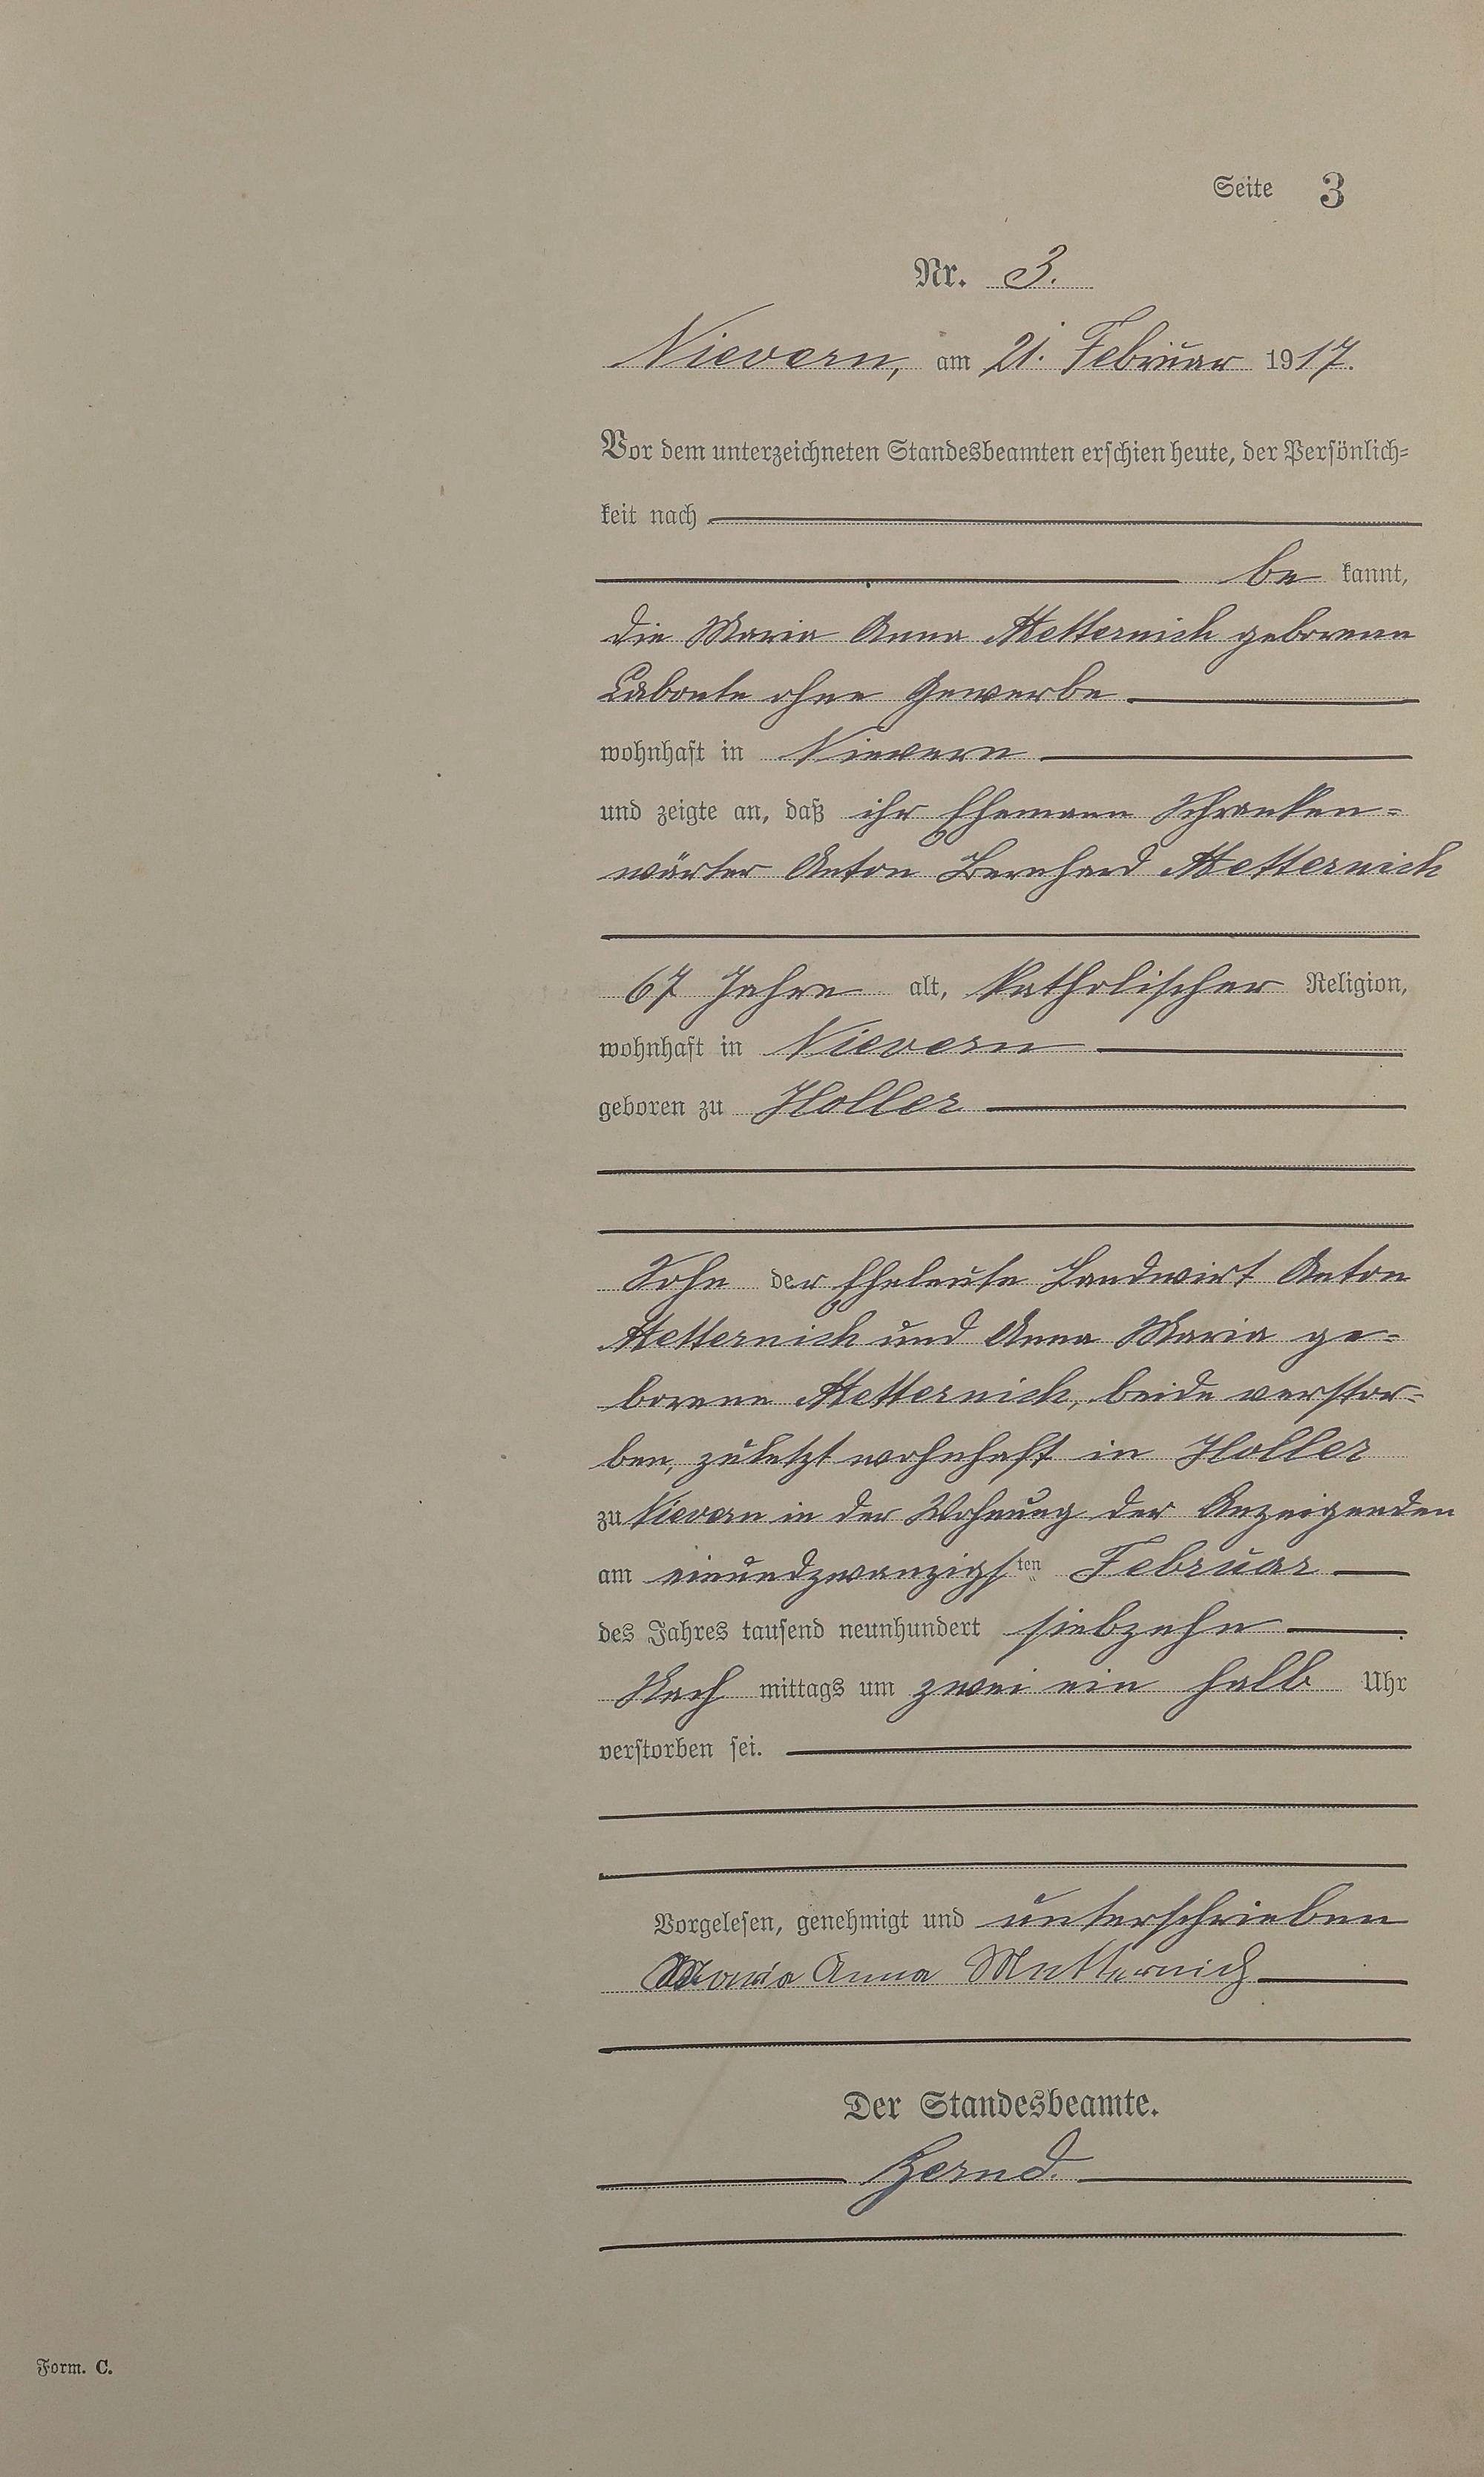 Seite 3
Nr. 3.
Nievern, am 21. Februar 1917.
Vor dem unterzeichneten Standesbeamten erschien heute, der Persönlich-
keit nach
be kannt,
die Maria Anna Metternich geborene
Labonte ohne Gewerbe
wohnhaft in Nievern
und zeigte an, daß ihr Ehemann Schranken-
wärter Anton Bernhard Metternich
67 Jahre alt, katholischer Religion,
wohnhaft in Nievern
geboren zu Holler
Sohn der Eheleute Landwirt Anton
Metternich und Anna Maria ge-
borene Metternich, beide verstor-
ben, zuletzt wohnhaft in Holler
zu Nievern in der Wohnung der Anzeigenden
am einundzwanzigsten Februar
des Jahres tausend neunhundert siebzehn
Nach mittags um zwei ein halb Uhr
verstorben sei.
Vorgelesen, genehmigt und unterschrieben
Maria Anna Metternich
Der Standesbeamte.
Form. C.